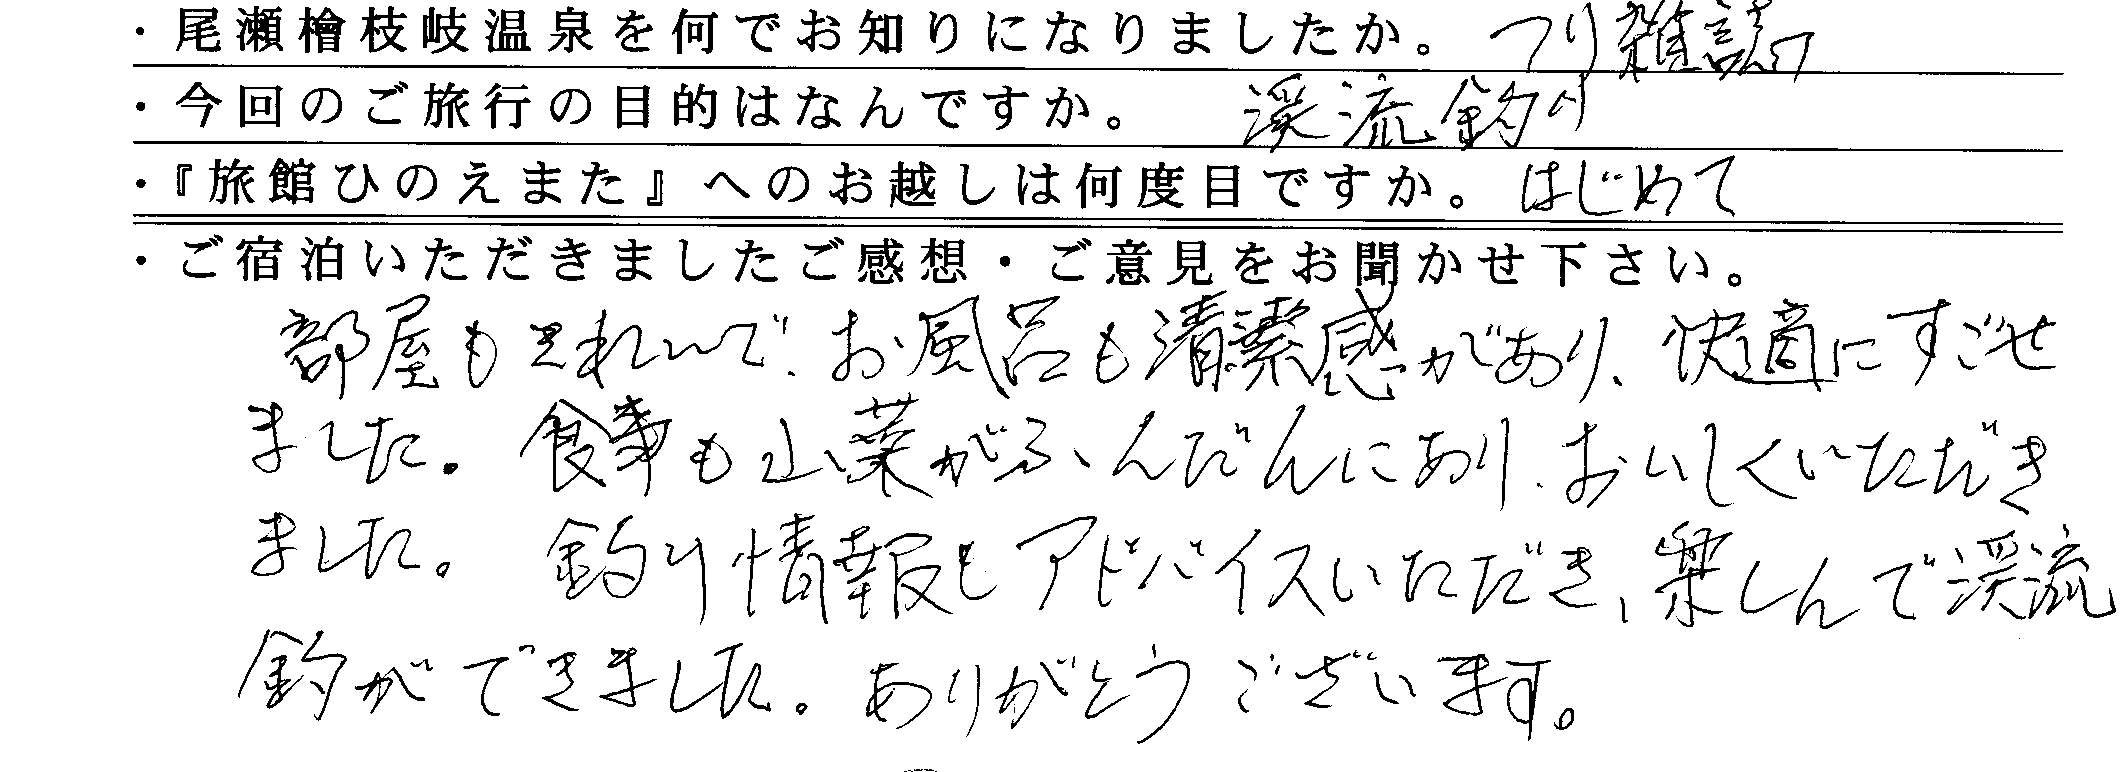 ・尾瀬檜枝岐温泉を何でお知りになりましたか。 つり雑誌
・今回のご旅行の目的はなんですか。 渓流釣り
・『旅館ひのえまた』へのお越しは何度目ですか。 はじめて
・ご宿泊いただきましたご感想・ご意見をお聞かせ下さい。
部屋もきれいで、お風呂も清潔感があり、快適にすごせ
ました。食事も山菜がふんだんにあり、おいしくいただき
ました。 釣り情報もアドバイスいただき、楽しんで渓流
釣ができました。ありがとうございます。